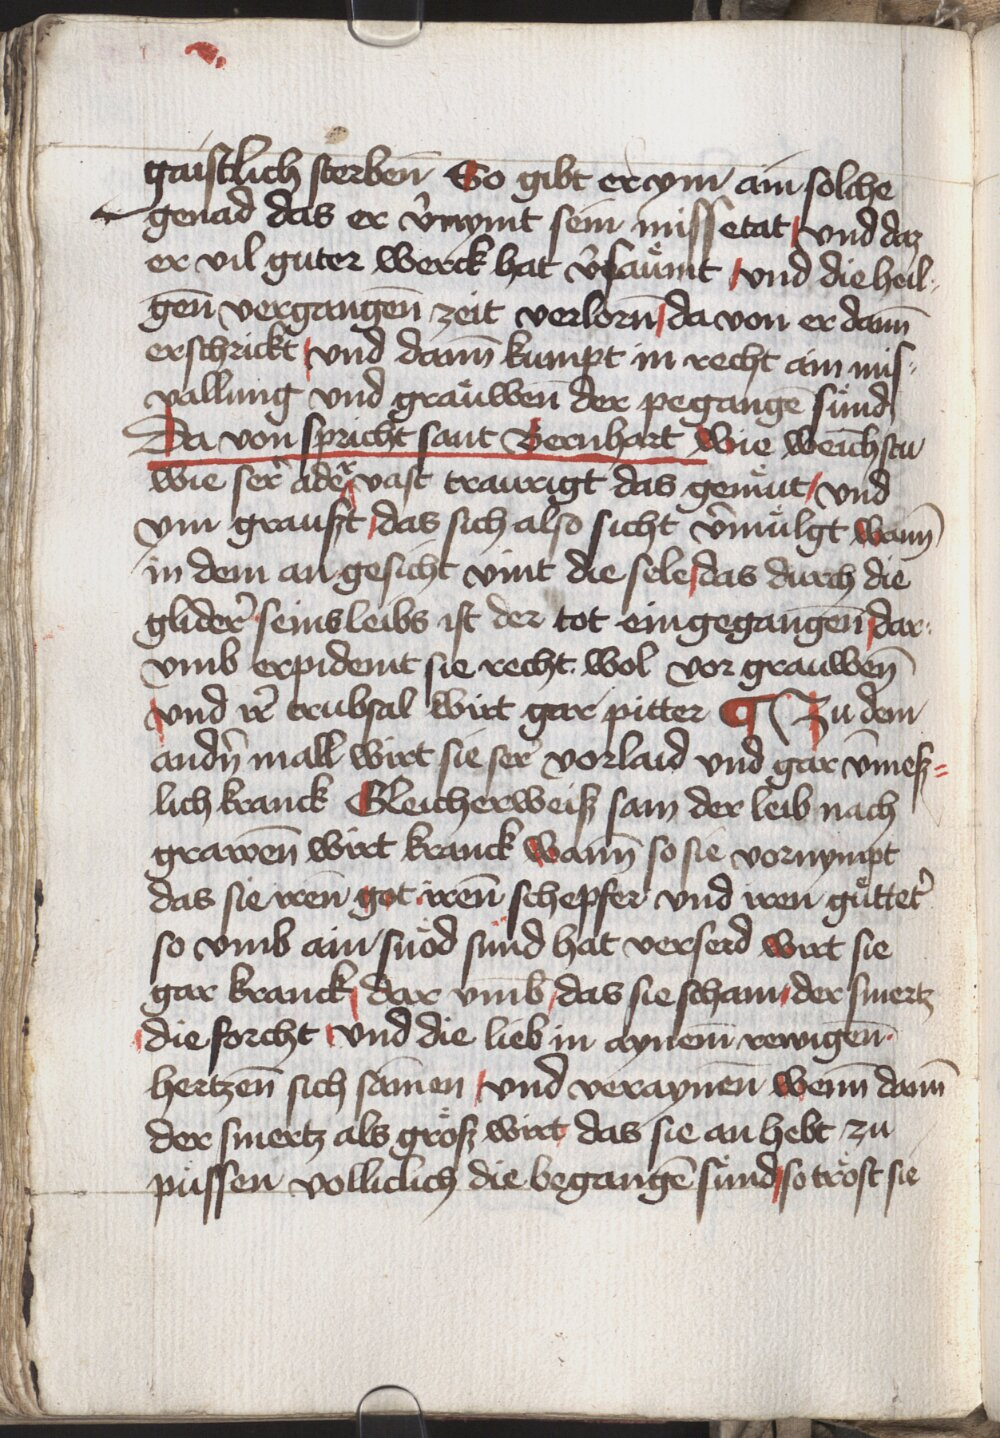 gaistlich sterben̄ So gibt er ym ain solche
genad das er v̄nymt sein missetat / vnd daz
er vil guter werck hat v̄saűmt / vnd die heil-
gen̄ vergangen̄ zeit verlorn̄ / da von er dann̄
erschrickt / vnd dann̄ kumpt in recht ain mis-
vallung vnd graűwen̄ der pegangē sűnd
Da von spricht sant Bernhart Wie wenīchstu
wie ser̄ ader vast traurigt das geműt / vnd
ym graußt / das sich also sicht v̄műlgt wann̄
in dem angesicht vint die sele / das durch die
glider̄ seins leibs ist der tot eingegangen̄ / dar-
vmb erpidemt sie recht wol vor grauwen̄
/ vnd ir̄ trubsal wirt gar pitter ¶ Zu dem
andn̄ mall wirt sie ser̄ vorlaid vnd gar v̄meß=
lich kranck Gleicherweiß sam der leib nach
grawen̄ wirt kranck wann̄ so sie vornympt
das sie iren̄ got iren̄ schepfer vnd iren gűttet̄
so vmb ain snőd sűnd hat verserd wirt sie
gar kranck / dar vmb / das sie scham / der smertz
/ die forcht / vnd die lieb in aynem̄ rewigen̄
hertzen̄ sich samen / vnd veraynen̄ wenn̄ dann̄
der smertz als grőß wirt das sie an hebt zu
pűssen volliclich die begangē sűnd / so trőst sie